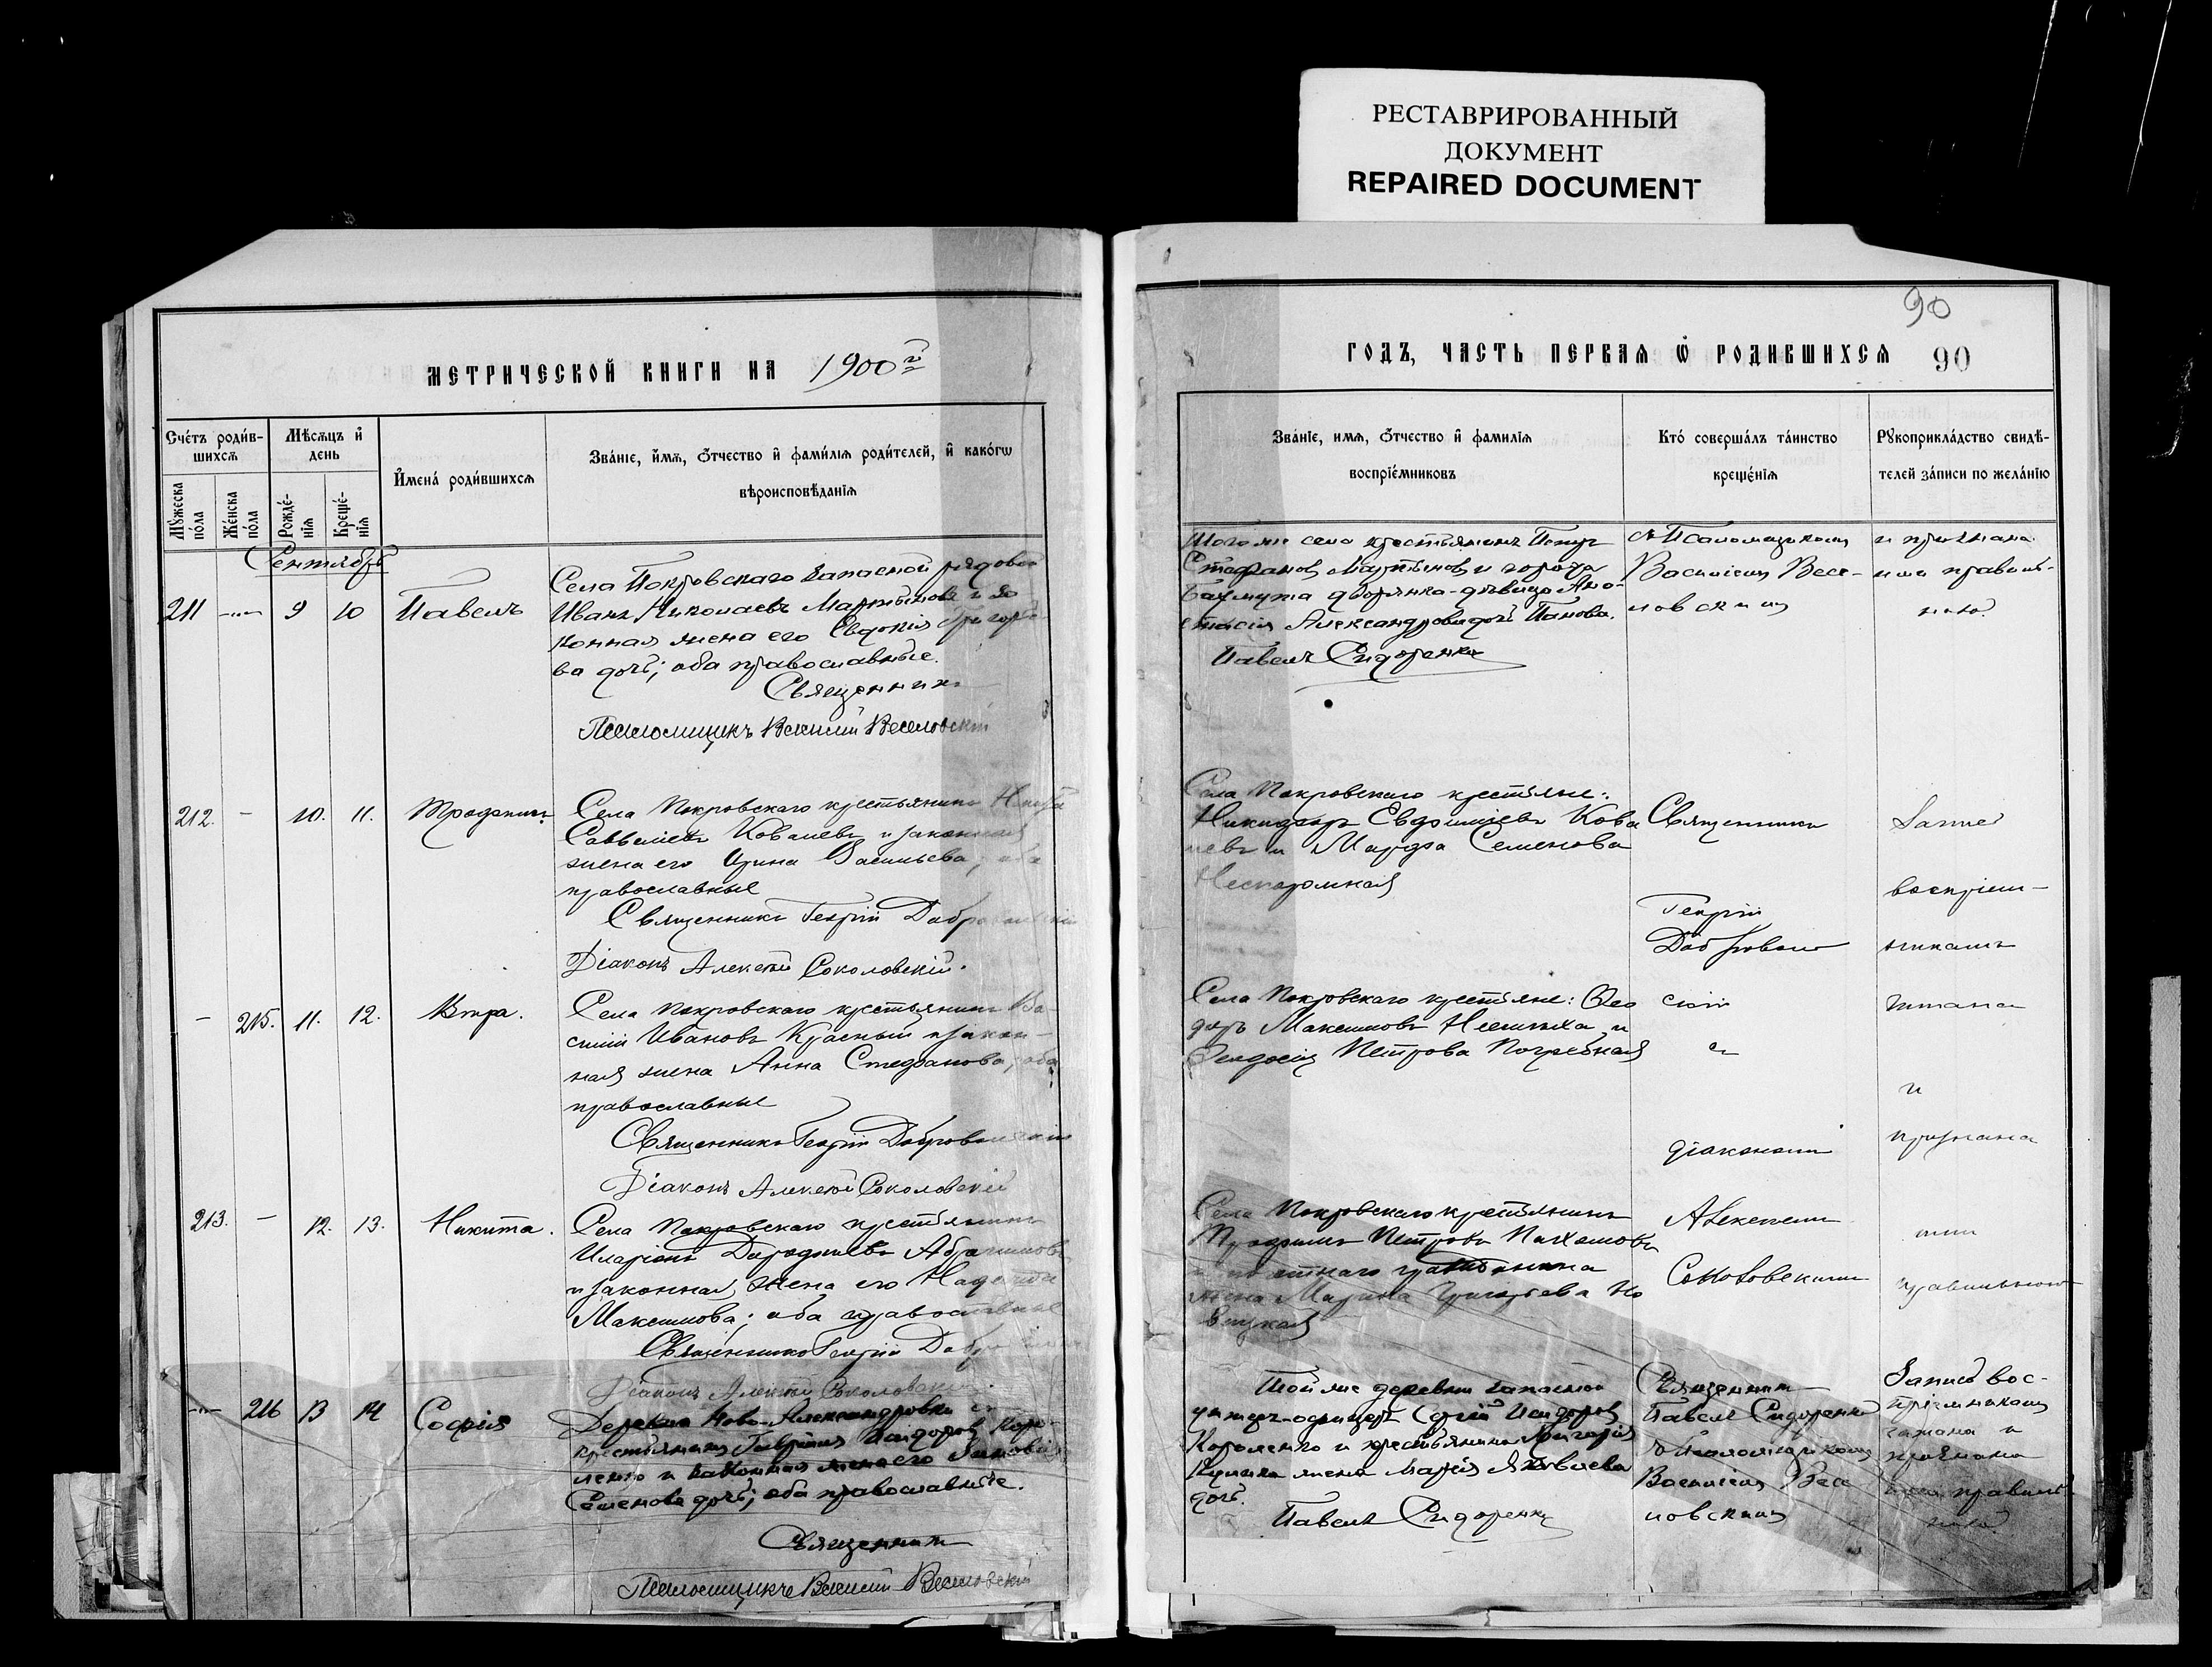 РЕСТАВРИРОВАННЫЙ
ДОКУМЕНТ
REPAIRED DOCUMENT
МЕТРИЧЕСКОЙ КНИГИ НА 1900й
Счетъ родившихся
Мѣсяцъ и день
Имена родившихся
Званіе, имя, отчество и фамилія родителей, и какого
вѣроисповѣданія
Мужеска пола
Женска пола
Рожденія
Крещенія
Сентябрь
211 — 9 10 Павелъ
Села Покровскаго запасной рядовой
Иванъ Николаевъ Мартыновъ и за
конная жена его Евдокія Григорье
ва дочь; оба православные.
Священникъ
Псаломщикъ Василій Веселовскій
212. — 10. 11. Трофимъ.
Села Покровскаго крестьянинъ Никита
Савельевъ Ковалевъ и законная
жена его Ирина Васильева; оба
православные
Священникъ Георгій Добровольскій
Діаконъ Алексѣй Соколовскій.
— 215. 11. 12. Вѣра.
Села Покровскаго крестьянинъ Ва-
силій Ивановъ Красный и закон-
ная жена Анна Стефанова; оба
православные
Священникъ Георгій Добровольскій
Діаконъ Алексѣй Соколовскій
213. — 12. 13. Никита.
Села Покровскаго крестьянинъ
Иларіонъ Дорофѣевъ Абрамовъ
и законная жена его Надежда
Максимова; оба православные
Священникъ Георгій
Діаконъ Алексѣй Соколовскій.
— 216 13 14 Софія
Деревни Ново-Александровки
крестьянинъ Гавріилъ Исидоровъ Коро-
ленко и законная жена его Зиновія
Семенова дочь; оба православные.
Священникъ
Псаломщикъ Василій Веселовскій
90
ГОДЪ, ЧАСТЬ ПЕРВАЯ Ѽ РОДИВШИХСЯ 90
Званіе, имя, отчество и фамилія
воспріемниковъ
Кто совершалъ таинство
крещенія
Рукоприкладство свидѣ-
телей записи по желанію
Того же села крестьянинъ
Стефановъ Мартыновъ и города
Бахмута дворянка-дѣвица Ана-
стасія Александрова дочь Панова.
Павелъ Сидоренко
съ Псаломщикомъ
Василіемъ Весе-
ловскимъ
и признана
ими правиль-
ною.
Села Покровскаго крестьяне:
Никифоръ Евфиміевъ Кова
левъ и Марфа Семенова
Священникъ
Георгій
Доброволь
Запись
воспріем-
никамъ
Села Покровскаго крестьяне: Ѳео
доръ Максимовъ и
Феодосія Петрова Погребная
скій
съ
діакономъ
читана
и
признана
Села Покровскаго крестьянинъ
Трофимъ Петровъ Пахомовъ
почетнаго гражданина
жена Марина Григорьева Но
вицкая
Алексѣемъ
Соколовскимъ
ими
правильною
Той же деревни запасной
унтеръ-офицеръ Сергій Исидоровъ
Короленко и крестьянина Григорія
жена Марія Яковлева
дочь.
Павелъ Сидоренко
Священникъ
Павелъ Сидоренко
съ Псаломщикомъ
Василіемъ Весе
ловскимъ
Запись вос-
пріемникамъ
читана и
признана
ими правиль-
ною.